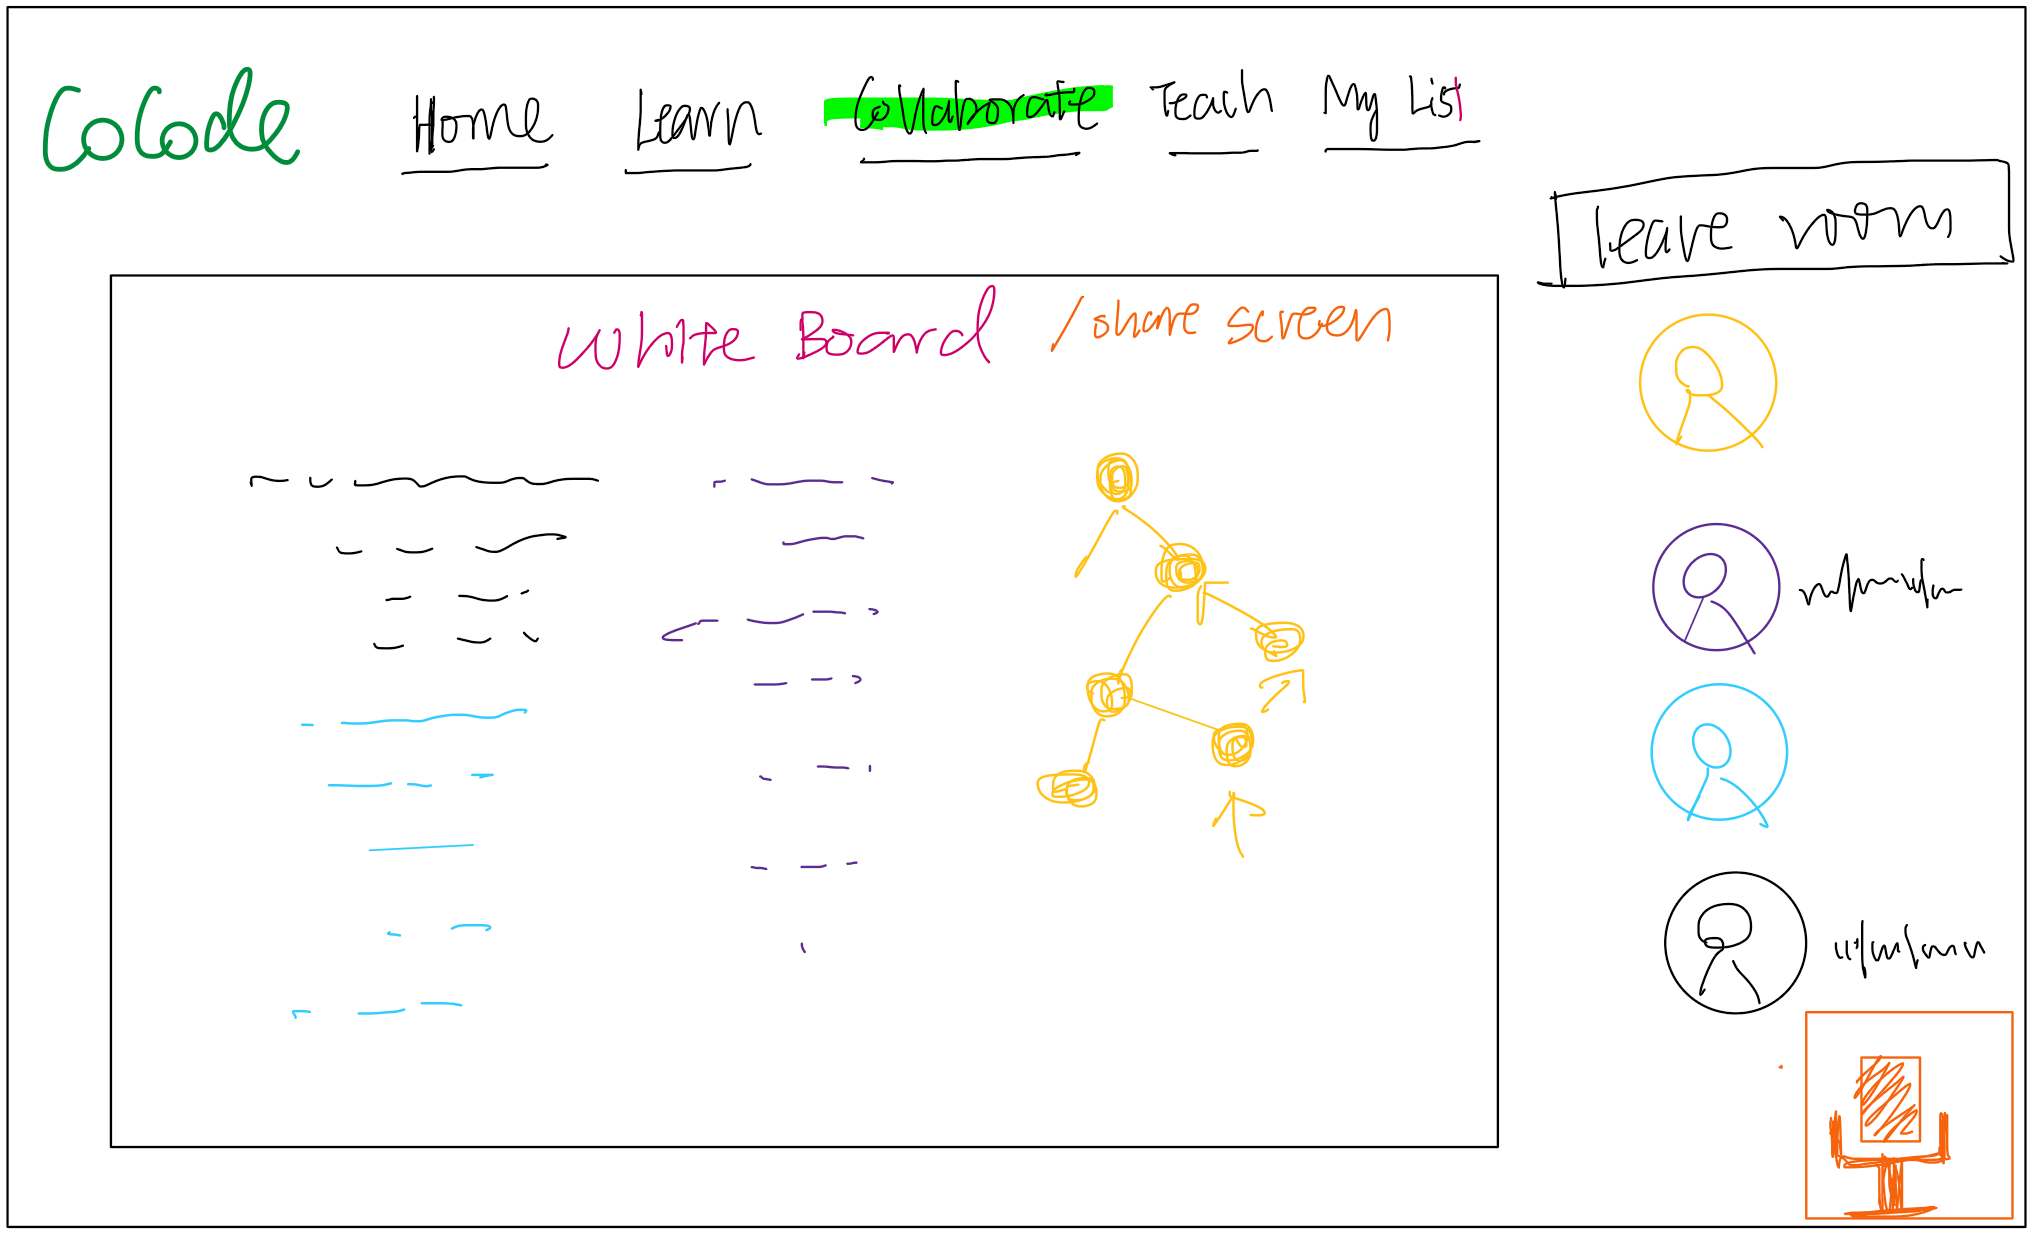 CoCode Home Learn Collaborate Teach My List
leave room
White Board / share screen